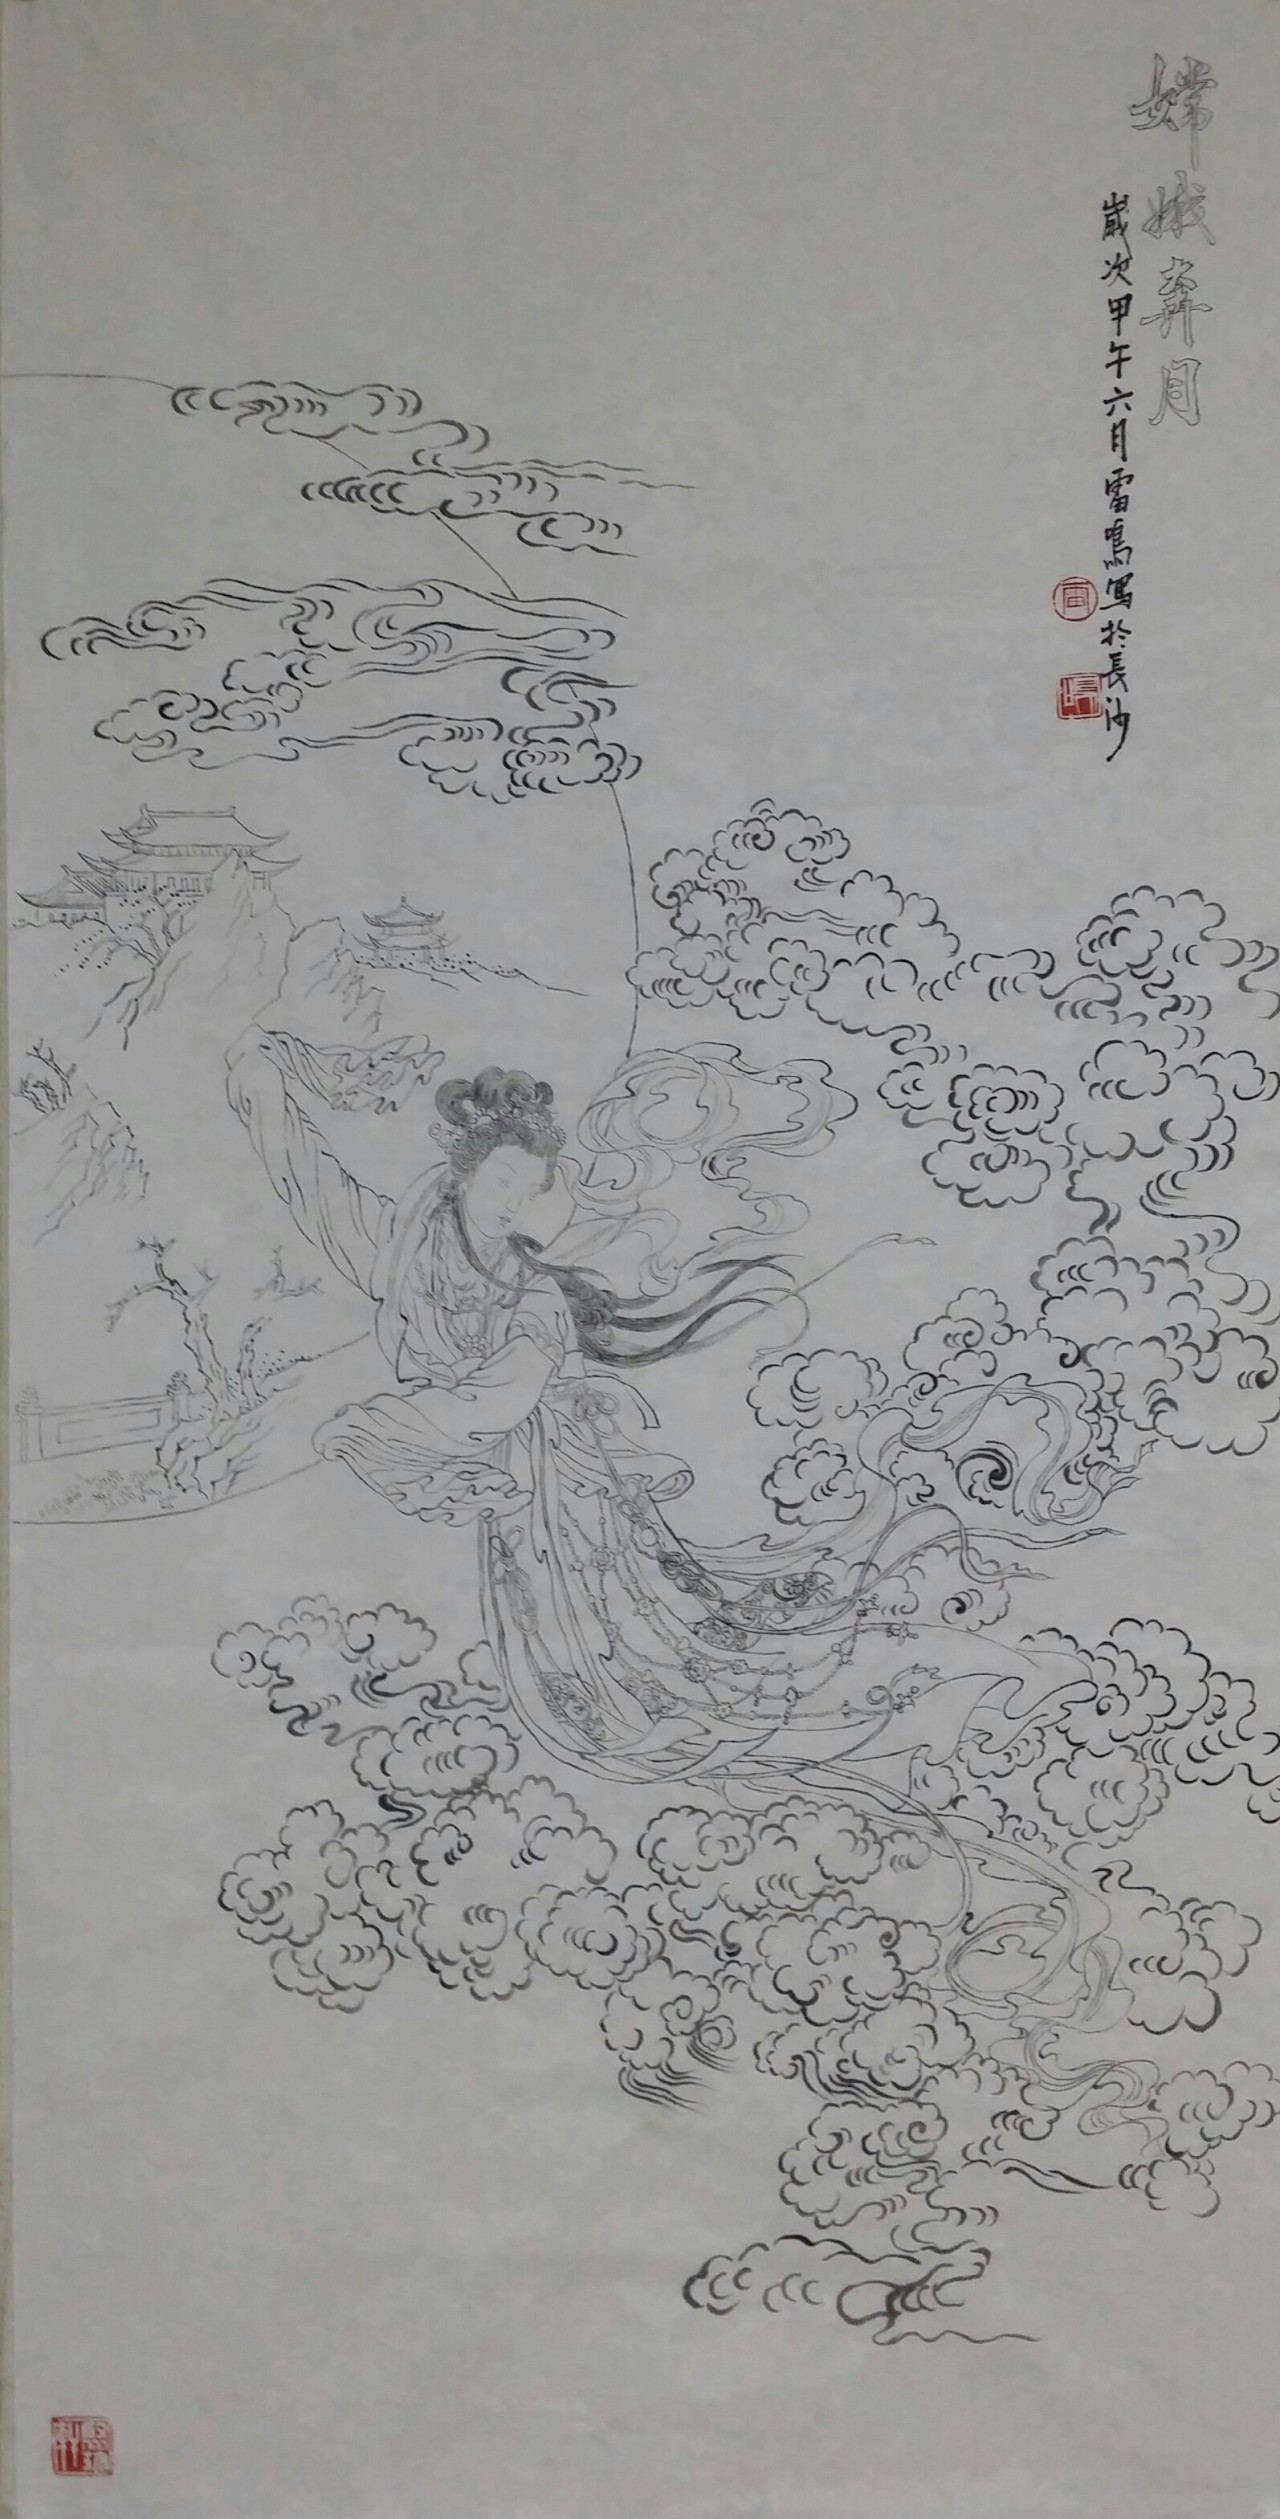 嫦娥奔月
歲次甲午六月雷鳴寫於長沙
雷